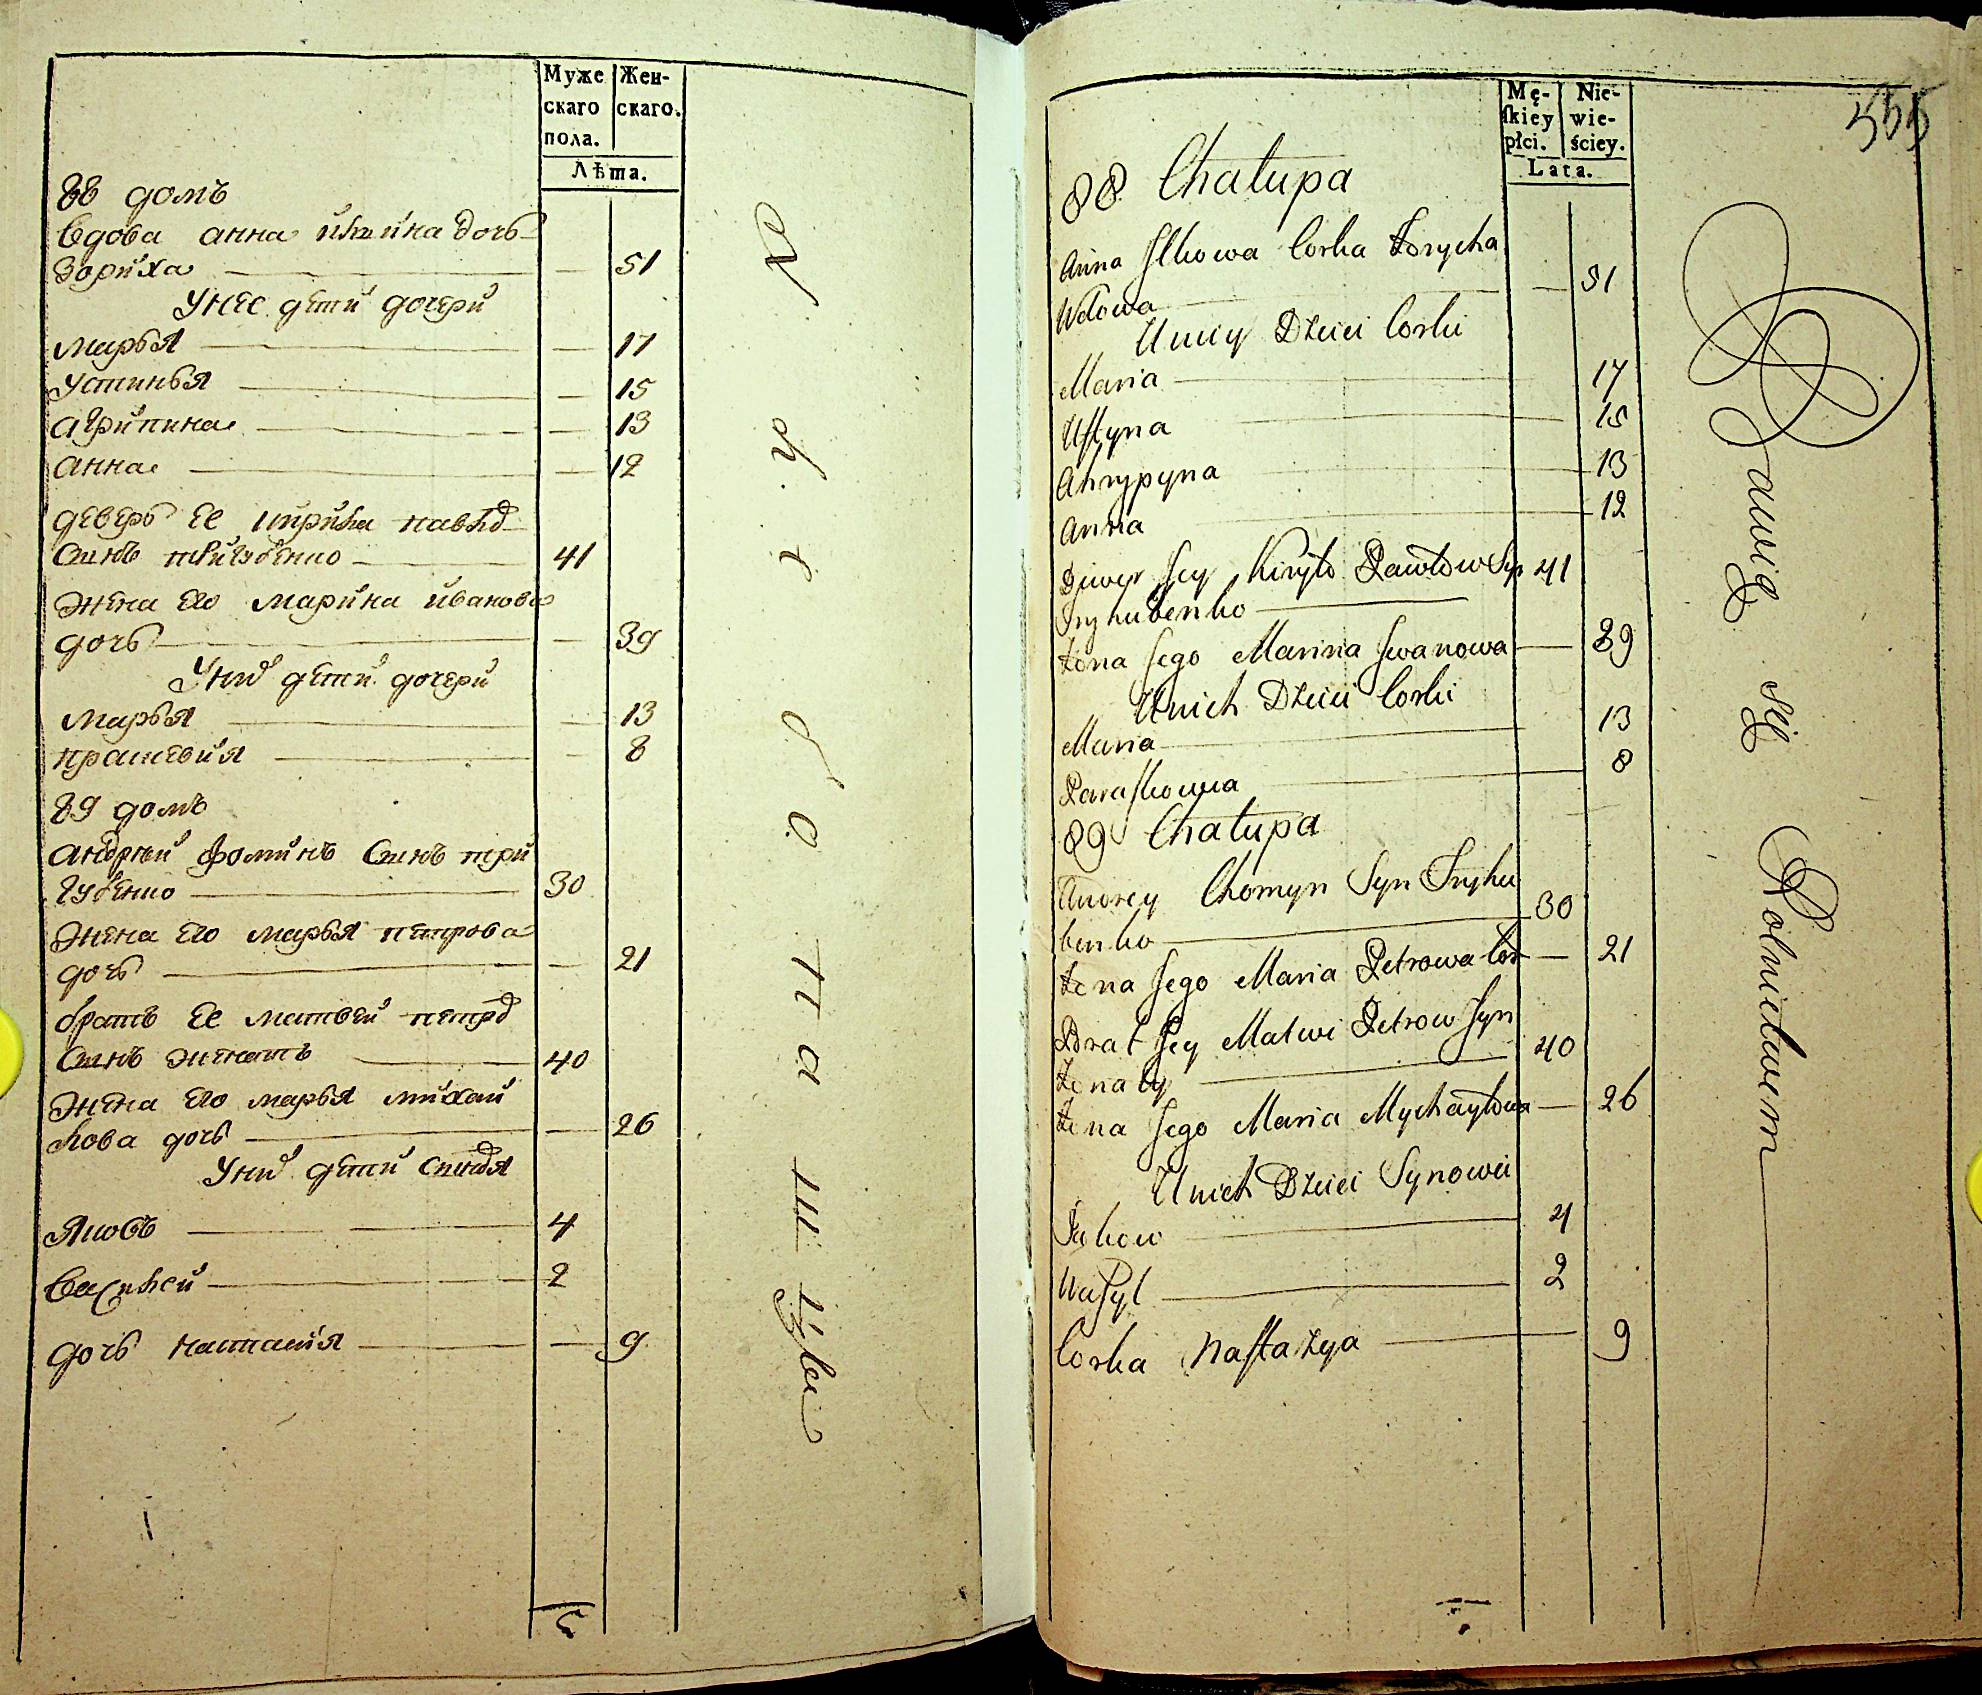 Муже
скаго
пола.
Жен-
скаго.
Лѣта.
88 домъ
вдова анна илкина дочь
Зориха 51
Унее дети дочери
марья 17
устинья 15
агрипина 13
анна 12
деверь ее кирила павлов
синъ тригубенко 41
жена его марина иванова
дочь 39
Уних дети дочери
марья 13
прасковия 8
89 домъ
андрѣй фоминъ синъ три
губенко 30
жена его марья петрова
дочь 21
братъ ее матвей петров
синъ женатъ 40
жена его марья михай
лова дочь 26
Уних дети синовя
Яковъ 4
василей 2
дочь настасия 9
Mę-
skiey
płci.
Nie-
wie-
ściey.
Lata.
555
88 Chałupa
Anna Jlkowa Corka Zorycha
Wdowa 51
Uniey Dzieci Corki
Maria 17
Ustyna 15
Ahrypyna 13
Anna 12
Dziwer Jey Kiryło Pawłow Syn 41
Tryhubenko
Żona Jego Marina Jwanowa 39
Unich Dzieci Corki
Maria 13
Paraskowia 8
89 Chałupa
Andrey Chomyn Syn Tryhu
benko 30
Żona Jego Maria Petrowa Cor 21
Brat Jey Matwi Petrow Syn
Żonaty 40
Żona Jego Maria Mychayłowa 26
Unich Dzieci Synowie
Jakow 4
Wasyl 2
Corka Nastazya 9
Bawią się Rolnictwem